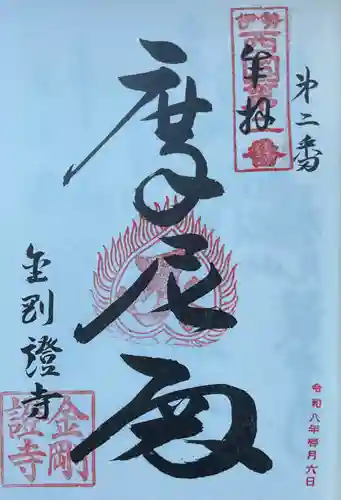 第二番
奉拝
伊勢
西国
摩尼殿
金剛證寺
金剛
證寺
令和八年
月六日